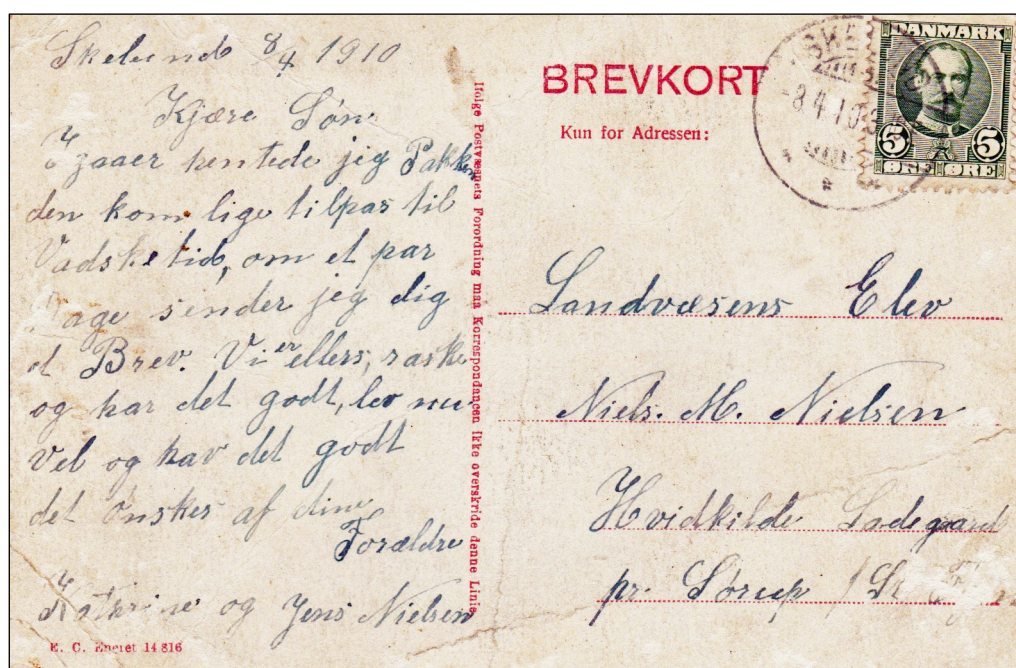 Skelund 8/4 1910
Kjære Søn
I gaaer hentede jeg Pakken
den kom lige tilpas til
Vadsketid, om et par
Dage sender jeg dig
et Brev. Vi er ellers, raske
og har det godt, lev nu
vel og hav det godt
det ønskes af dine
Forældre
Katrine og Jens Nielsen
E. C. Eneret 14816
Ifølge Postvæsnets Forordning maa Korrespondancen ikke overskride denne Linie.
BREVKORT
Kun for Adressen:
SKELUND
8.4.10
DANMARK
5 5
ØRE ØRE
Landvæsens Elev
Niels. M. Nielsen
Hvidkilde Ladegaard
pr. Sørup